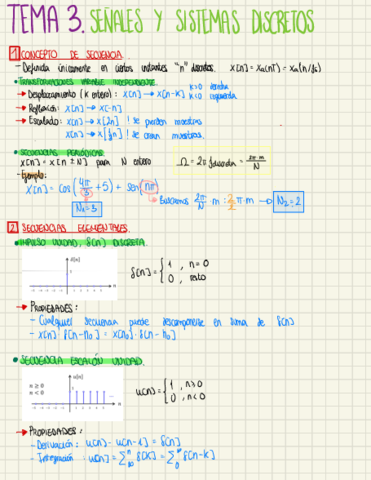 TEMA 3. SEÑALES Y SISTEMAS DISCRETOS
1 CONCEPTO DE SECUENCIA
- Definida únicamente en ciertos instantes "n" discretos. x[n] = xa(nT) = xa(n/fs)
• TRANSFORMACIONES VARIABLE INDEPENDIENTE
→ Desplazamiento (k entero): x[n] → x[n-k] k>0 derecha
k<0 izquierda
→ Reflexión: x[n] → x[-n]
→ Escalado: x[n] → x[2n] ! se pierden muestras
x[n] → x[½n] ! se crean muestras
• SECUENCIAS PERIÓDICAS
x[n] = x[n ± N] para N entero
Ω = 2π fdiscreta = 2π m / N
- Ejemplo:
x[n] = cos(4π/3 + 5) + sen(πn)
N1 = 3
Buscamos 2π/N · m : 2/2 π · m → N2 = 2
2 SECUENCIAS ELEMENTALES
• IMPULSO UNIDAD, δ[n] DISCRETA
δ[n]
n
δ[n] = { 1 , n=0
0 , resto
→ PROPIEDADES:
- Cualquier secuencia puede descomponerse en suma de δ[n]
- x[n] · δ[n-n0] = x[n0] · δ[n-n0]
• SECUENCIA ESCALÓN UNIDAD
u[n]
n ≥ 0
n < 0
n
u[n] = { 1 , n≥0
0 , n<0
→ PROPIEDADES:
- Derivación: u[n] - u[n-1] = δ[n]
- Integración: u[n] = Σ δ[k] = Σ δ[n-k]